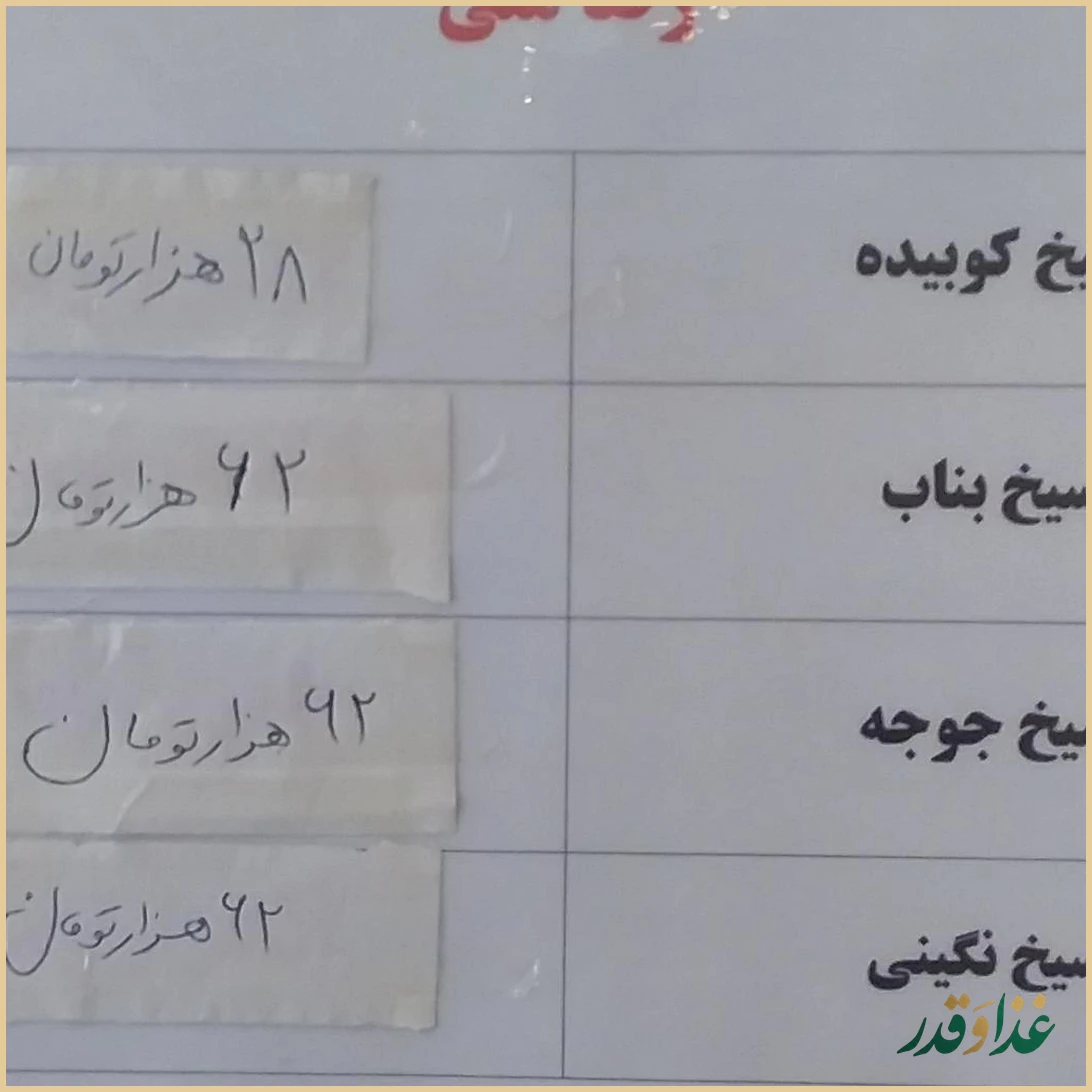 سیخ کوبیده ۲۸ هزارتومان
سیخ بناب ۶۲ هزارتومان
سیخ جوجه ۶۲ هزارتومان
سیخ نگینی ۶۲ هزارتومان
غذا و قدر